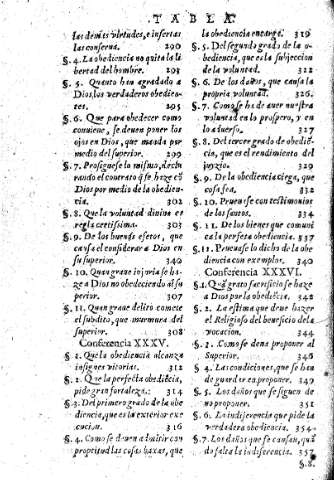 TABLA
las demas virtudes, e insertas
las conserua. 290
§. 4. La obediencia no quita la li
bertad del hombre. 293
§. 5. Quanto han agradado a
Dios, los verdaderos obedien-
tes. 295
§. 6. Que para obedecer como
conuiene, se deuen poner los
ojos en Dios, que manda por
medio del superior. 299
§. 7. Prosiguese lo mismo, decla-
rando el contrato q̃ se haze cõ
Dios por medio de la obedien-
cia. 302
§. 8. Que la voluntad diuina es
regla certissima. 303
§. 9. De los buenos efetos, que
causa el considerar a Dios en
su superior. 340
§. 10. Quan graue injuria se ha-
ze a Dios no obedeciendo al su
perior. 307
§. 11. Quan graue delito comete
el subdito, que murmura del
superior. 308
Conferencia XXXV.
§. 1. Que la obediencia alcanza
insignes vitorias. 312
§. 2. Que la perfecta obediẽcia,
pide gran fortaleza. 314
§. 3. Del primero grado de la obe
diencia, que es la exterior exe
cucion. 316
§. 4. Como se deuen admitir con
promptitud las cosas baxas, que
la obediencia encarga. 319
§. 5. Del segundo grado de la o-
bediencia, que es la subjeccion
de la voluntad. 322
§. 6. De los daños, que causa la
propria voluntad. 326.
§. 7. Como se ha de auer nuestra
voluntad en lo prospero, y en
lo aduerso. 327
§. 8. Del tercero grado de obediẽ-
cia, que es el rendimiento del
juyzio. 329
§. 9. De la obediencia ciega, que
cosa sea. 332
§. 10. Prueuase con testimonios
de los santos. 334
§. 11. De los bienes que comuni
ca la perfeta obediencia. 337
§. 12. Prueuase lo dicho de la obe
diencia con exemplos. 340
Conferencia XXXVI.
§. 1. Quã grato sacrificio se haze
a Dios por la obediẽcia. 342
§. 2. La estima que deue hazer
el Religioso del beneficio de la
vocacion. 344
§. 3. Como se deua proponer al
Superior. 346
§. 4. Las condiciones, que se han
de guardar en proponer. 349
§. 5. Los daños que se siguen de
no proponer. 351
§. 6. La indiferencia que pide la
verdadera obediẽcia. 354.
§. 7. Los daños que se causan, quã
do falta la indiferencia. 357
§. 8.